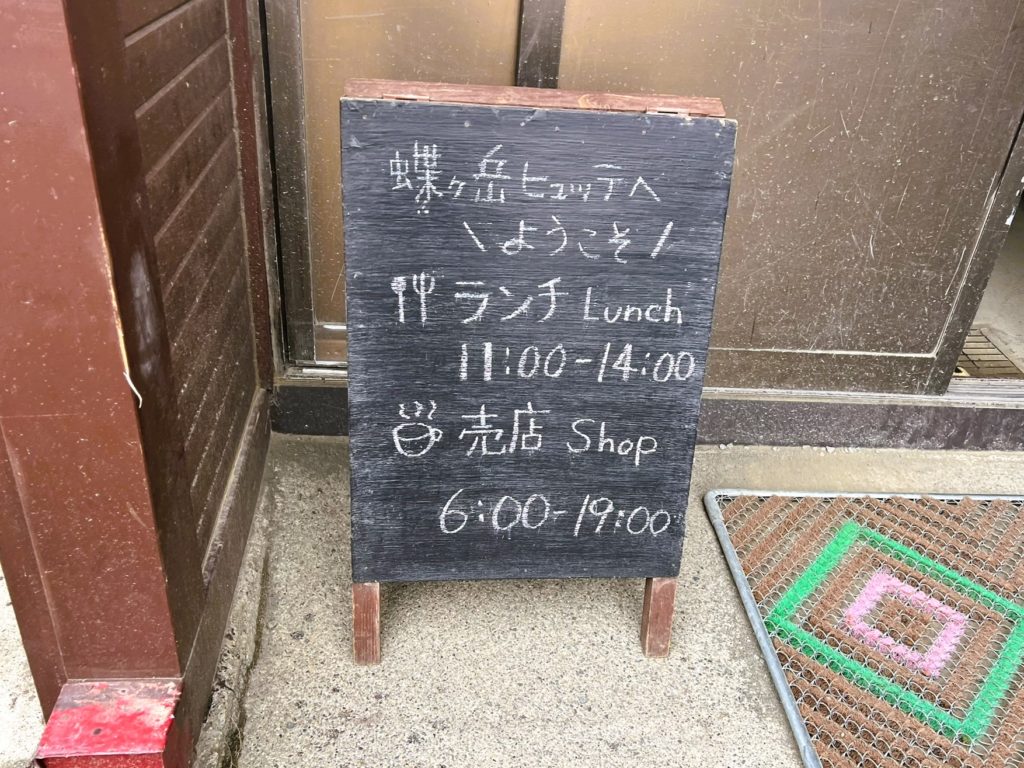 蝶ヶ岳ヒュッテへ
\ようこそ/
ランチ Lunch
11:00-14:00
売店 Shop
6:00-19:00